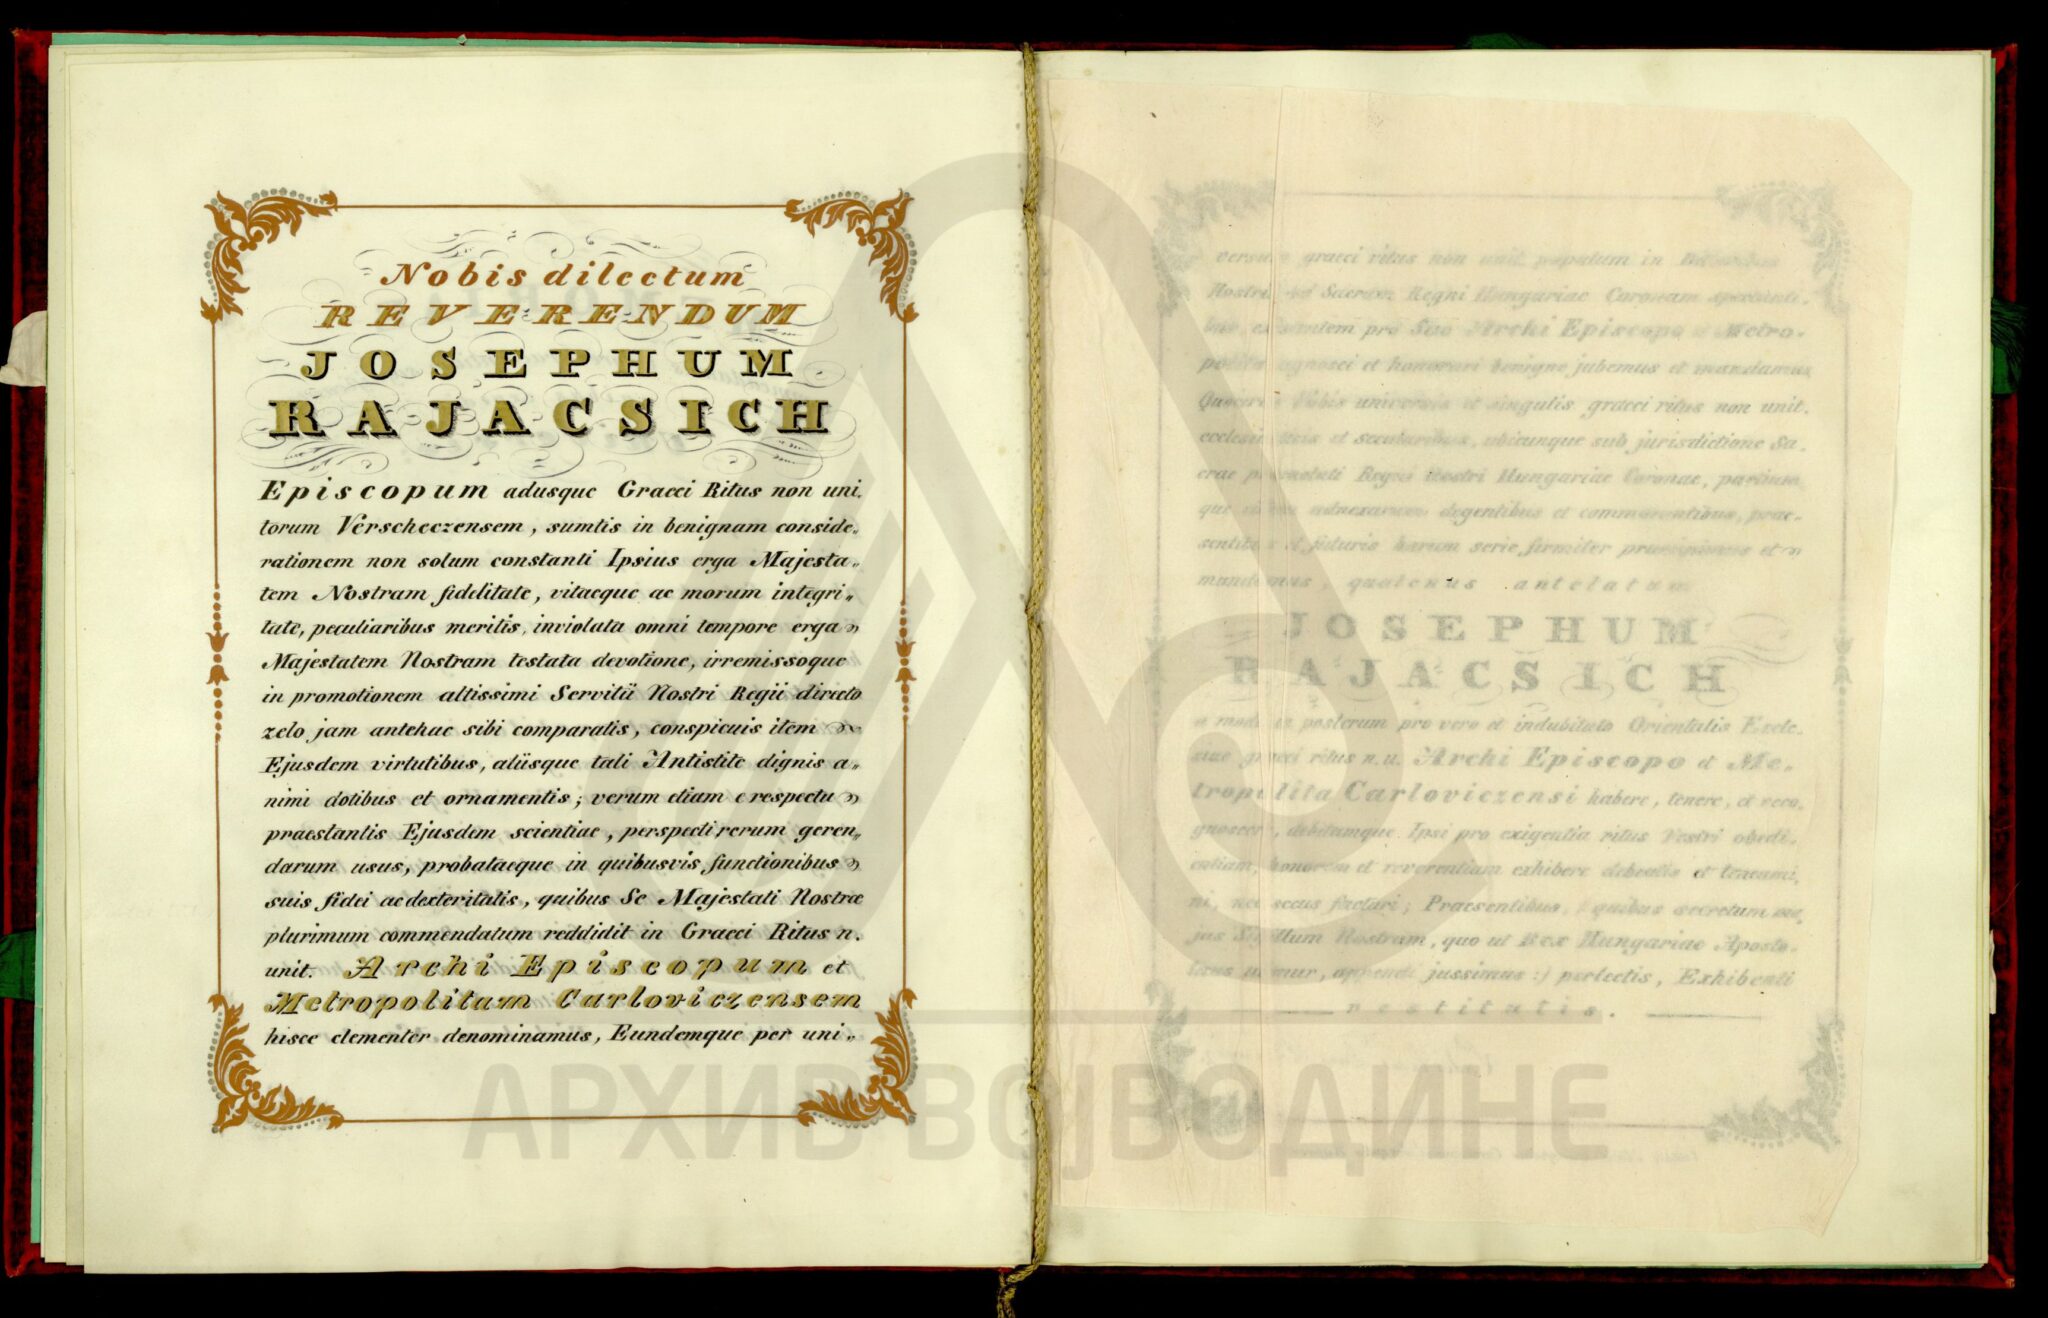 Nobis dilectum
REVERENDUM
JOSEPHUM
RAJACSICH
Episcopum adusque Graeci Ritus non uni„
torum Verscheczensem, sumtis in benignam conside„
rationem non solum constanti Ipsius erga Majesta„
tem Nostram fidelitate, vitaeque ac morum integri„
tate, peculiaribus meritis, inviolata omni tempore erga
Majestatem Nostram testata devotione, irremissoque
in promotionem altissimi Servitii Nostri Regii directo
zelo jam antehac sibi comparatis, conspicuis item
Ejusdem virtutibus, aliisque tali Antistite dignis a„
nimi dotibus et ornamentis; verum etiam e respectu
praestantis Ejusdem scientiae, perspecti rerum geren„
darum usus, probataeque in quibusvis functionibus
suis fidei ac dexteritatis, quibus Se Majestati Nostræ
plurimum commendatum reddidit in Graeci Ritus n.
unit. Archi Episcopum et
Metropolitam Carloviczensem
hisce clementer denominamus, Eundemque per uni„
graeci ritus non unit. populum in
Nostri Sacram Regni Hungariae Coronam
pro Suo Archi Episcopo et Metro„
agnosci et honorari benigne jubemus et mandamus
Vobis universis et singulis graeci ritus non unit.
et secularibus, ubicunque sub jurisdictione Sa„
crae Regni Nostri Hungariae Coronae, partium
que adnexarum degentibus et commorantibus, prae„
sentibus et futuris harum serie firmiter praecipimus et
mandamus, quatenus antelatum
JOSEPHUM
RAJACSICH
a modo in posterum pro vero et indubitato Orientalis Eccle„
siae graeci ritus n. u. Archi Episcopo et Me„
tropolita Carloviczensi habere, tenere, et reco„
gnoscere, debitamque Ipsi pro exigentia ritus Vestri obedi„
entiam, honorem et reverentiam exhibere debeatis et teneami„
ni, nec secus facturi; Praesentibus, quibus secretum ma„
jus Sigillum Nostrum, quo ut Rex Hungariae Aposto„
licus utimur, appendi jussimus :) perlectis, Exhibenti
restitutis.
АРХИВ ВОЈВОДИНЕ